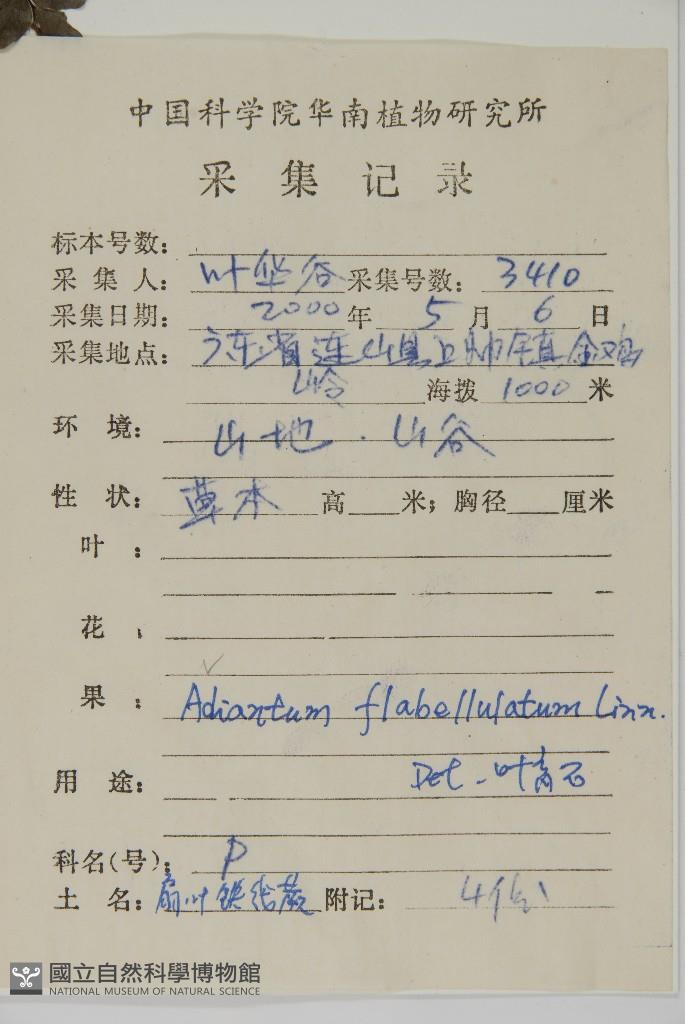 中国科学院华南植物研究所
采集记录
标本号数:
采集人: 叶华谷 采集号数: 3410
采集日期: 2000年 5月 6日
采集地点: 广东省连山县上帅镇金鸡
山岭 海拨 1000 米
环境: 山地．山谷
性状: 草本 高 米; 胸径 厘米
叶:
花:
果: Adiantum flabellulatum Linn.
Det. 叶育石
用途:
科名(号): P
土名: 扇叶铁线蕨 附记: 4份
國立自然科學博物館
NATIONAL MUSEUM OF NATURAL SCIENCE